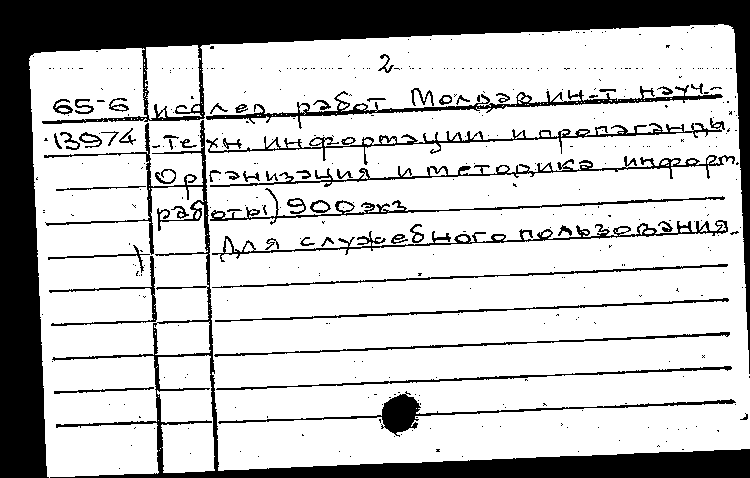 2
65-6 исслед. работ Молдав ин-т науч-
13974 -техн. информации и пропаганды.
Организация и методика информ.
работы) 900 экз
Для служебного пользования.